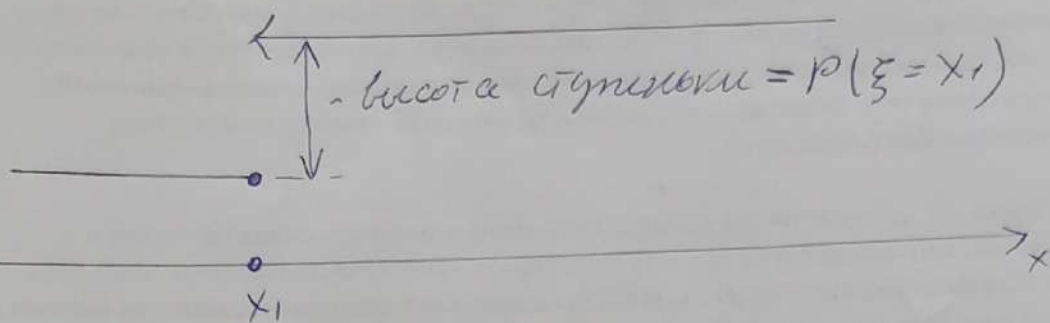 - высота ступеньки = P(ξ = x₁)
x
x₁